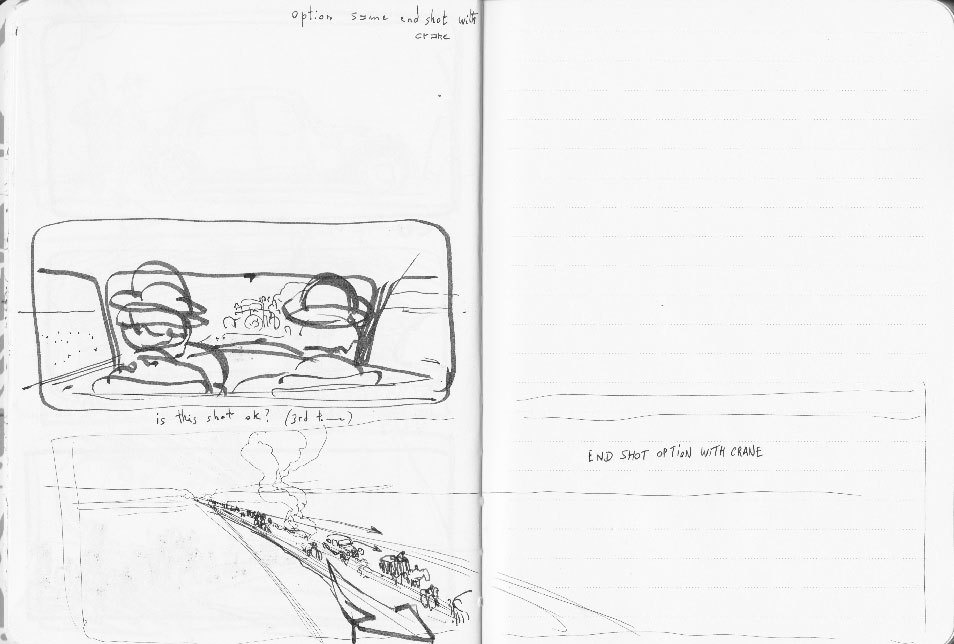 option same end shot with
crane
is this shot ok? (3rd time)
END SHOT OPTION WITH CRANE